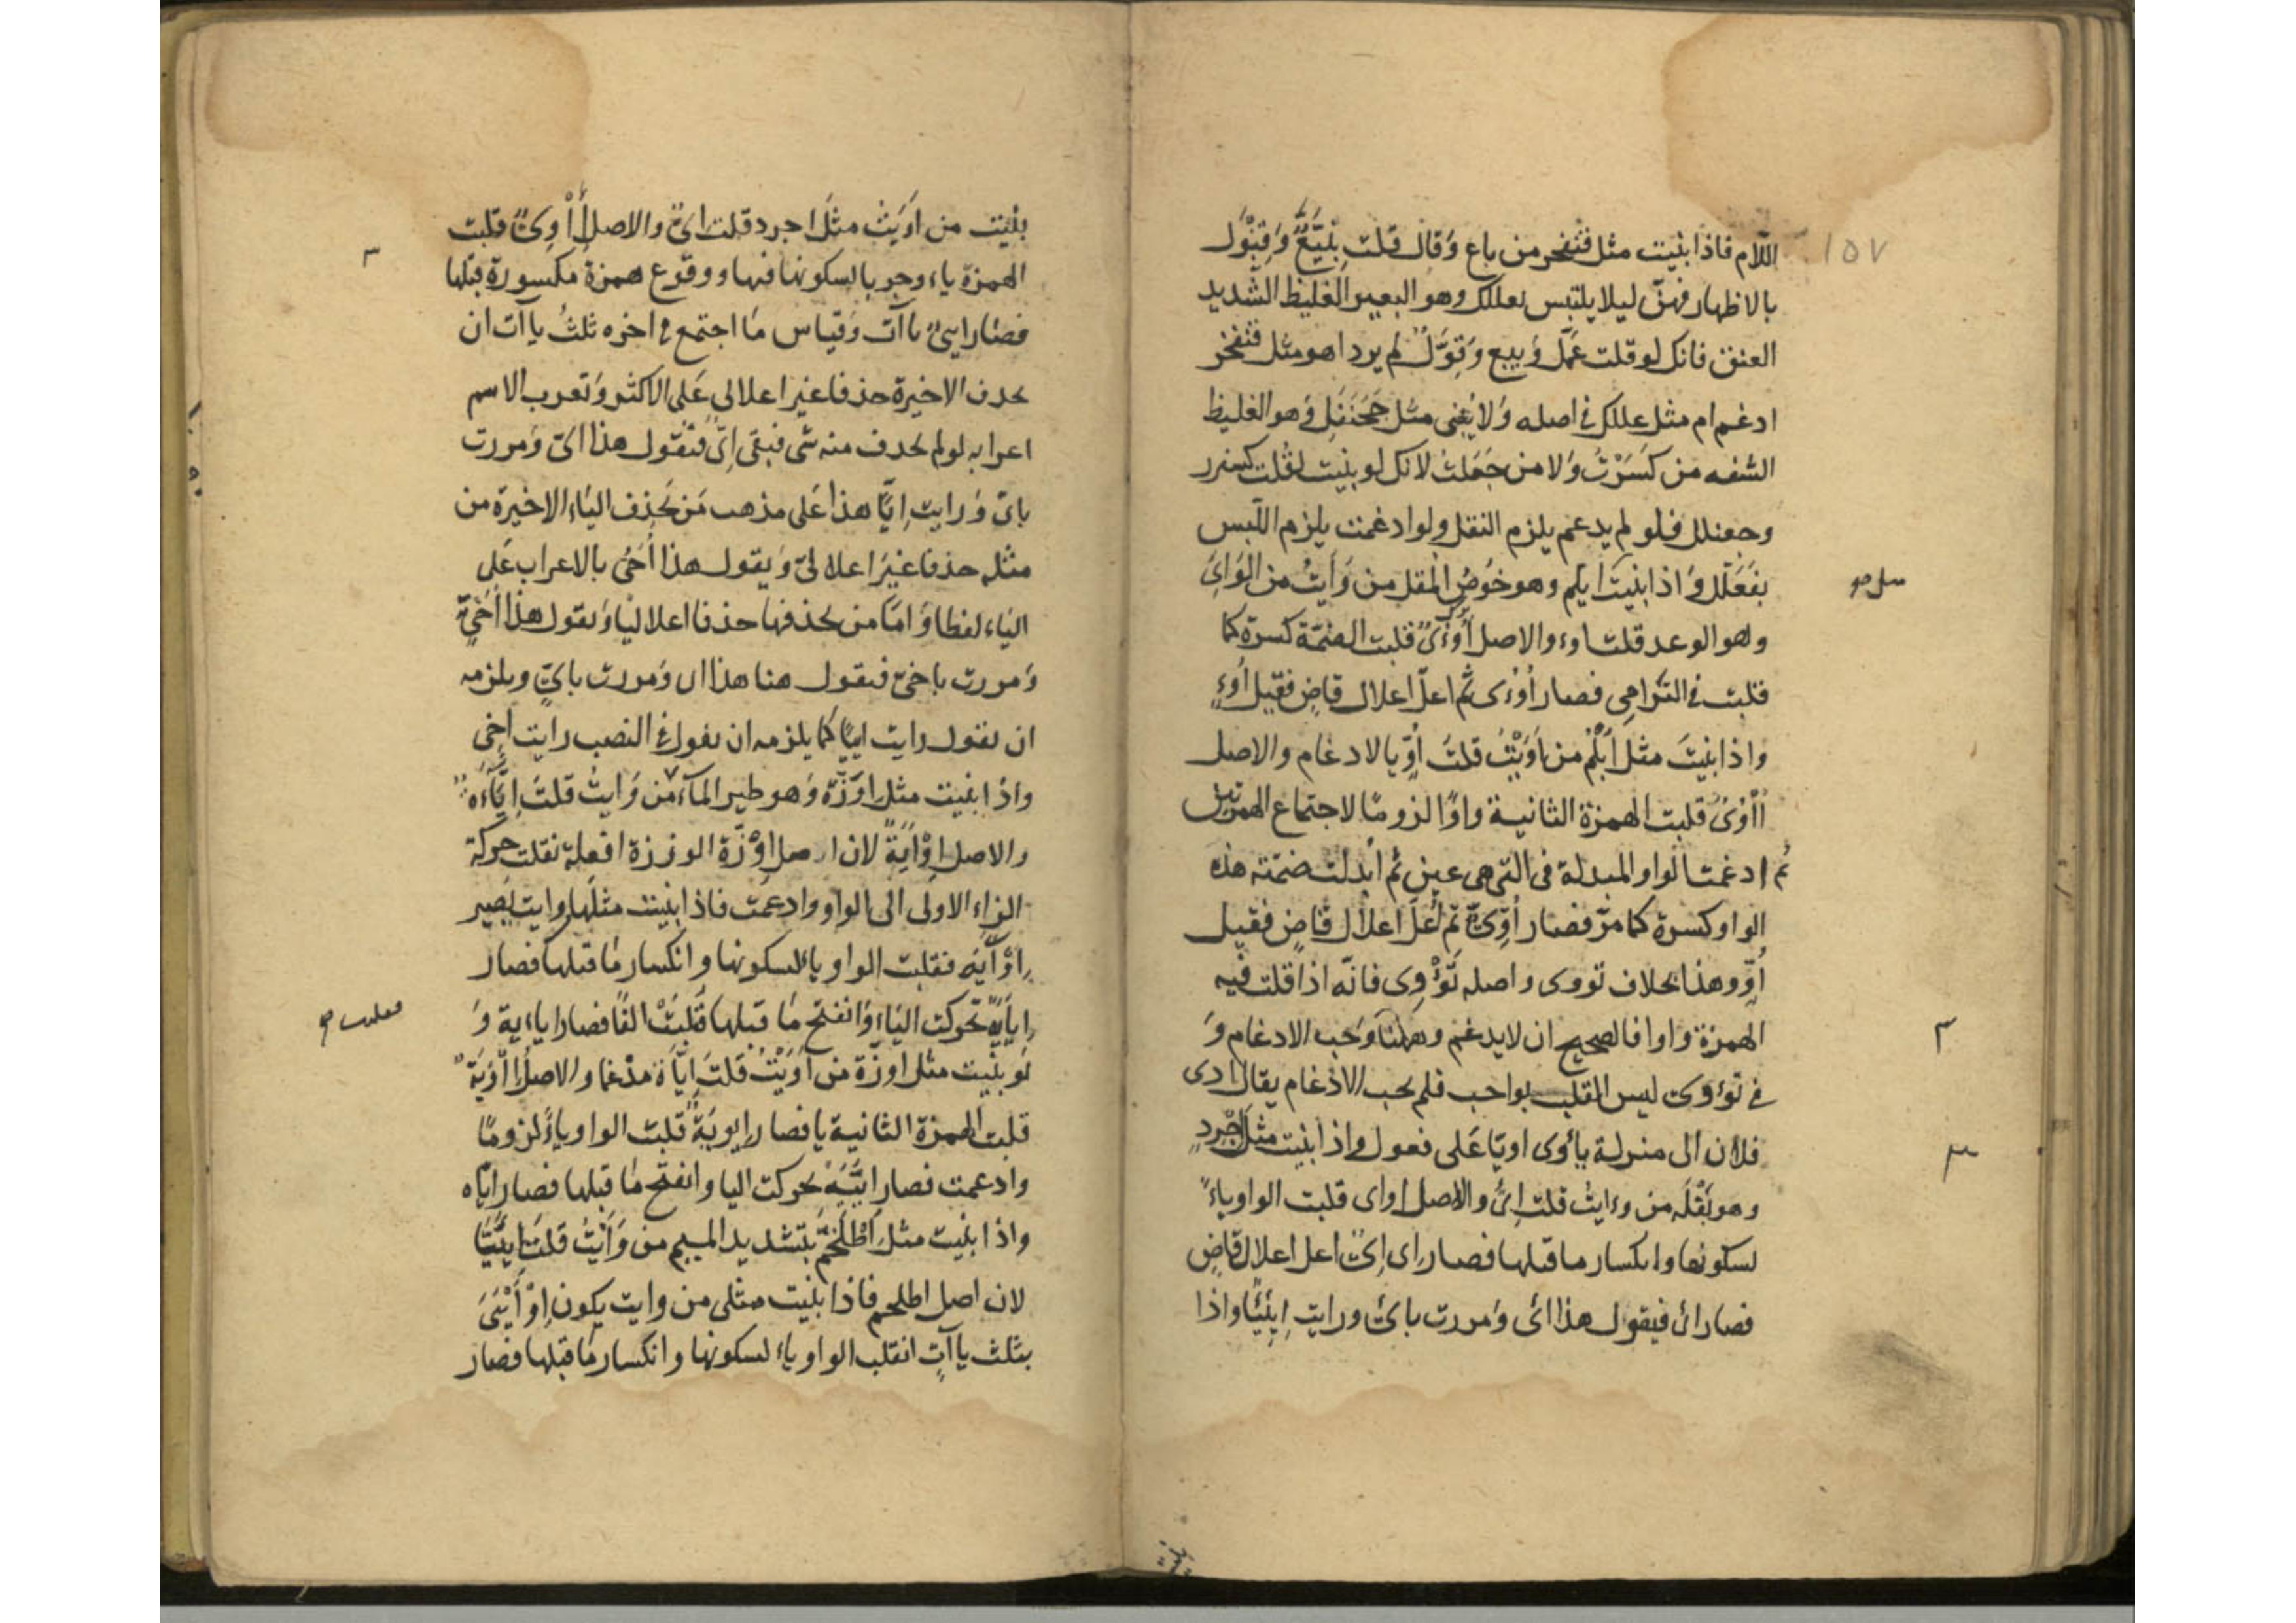 ١٥٧
اللّام فاذا بنيت مثل قنفخر من باع وقال قلت بنيّع وقنول
بالاظهار فهنّ ليلا يلتبس بعلكد وهو البعير الغليظ الشّديد
العنق فانك لو قلت عمّل وبيع وقوّل لم يرد اهو مثل قنفخر
ادغم ام مثل علكد في اصله ولا يُبنى مثل جحنفل وهو الغليظ
الشفه من كسرتُ ولا من جعلتُ لانك لو بنيت لقلت كسنرر
وجعنلل فلو لم يدغم يلزم الثقل ولو ادغمت يلزم اللّبس
بفعلّل واذا بنيت ابلم وهو خوص المقل من وَأَيتُ من الوَأي
وهو الوعد قلت اوء والاصل أُوْؤُىٌ قلبت الضمّة كسرة كما
قلبت في الترامى فصار أُوْءى ثم اعلّ اعلال قاضٍ فقيل أُوْءٍ
واذا بنيتَ مثل أُبْلُم من أَوَيْتُ قلتَ أُوٍّ بالادغام والاصل
أُأْوُىٌ قلبت الهمزة الثانية واوًا لزومًا لاجتماع الهمزتين
ثم ادغمت الواو المبدلة فى التى هى عين ثم ابدلت ضمّته هذه
الواو كسرة كما مرّ فصار أُوّىٌ ثم أُعلّ اعلال قاضٍ فقيل
أُوٍّ وهذا بخلاف تووى واصله تُؤْوِى فانّه اذا قلت فيه
الهمزة واوا فالصحيح ان لا يدغم وههنا وجب الادغام و
في تؤوى ليس القلب بواجب فلم يجب الادغام يقال ادى
فلان الى منزلة يأوى اويّا على فعول واذا بنيت مثل اجْرِدٍ
وهو بَقْلَه من وءايتُ قلت اِىْءٍ والاصل اواى قلبت الواو ياءً
لسكونها وانكسار ما قبلها فصار اى اِىٌ اعل اعلال قاضٍ
فصار ائ فيقول هذا ائ ومررت بائ ورايت اِيئيًا واذا
بنيت من اويتُ مثلَ اجرد قلت اىٌّ والاصل أأْوِىٌ قلبت
الهمزة ياء وجوبا لسكونها فيها ووقوع همزة مكسورة قبلها
فصار ايىٌّ ياآت وقياس ما اجتمع في اخره ثلثُ ياآت ان
يحذف الاخيرة حذفا غير اعلالى على الاكثر وتعرب الاسم
اعرابه لو لم يحذف منه شى فبقى اِىٌّ فتقول هذا اىّ ومررت
باىّ ورايت اِيًّا هذا على مذهب من يَحْذِف الياء الاخيرة من
مثله حذفا غيرَ اعلالىّ ويقول هذا أُحَىُّ بالاعراب على
الياء لفظا وامّا من يحذفها حذفا اعلاليا ويقول هذا أُحَىٍّ
ومررت باحىّ فيقول هنا هذا اى ومررت باىٍّ ويلزمه
ان يقول رايت اييًا كما يلزمه ان يقول في النصب رايت احيى
واذا بنيت مثل اوزّة وهو طير المآء من وَايتُ قلت اِيئاة
والاصل اِوْأَيَةٌ لان اصل اوزّة اوززة افعلة نقلت حركة
الزاء الاولى الى الواو وادغمت فاذا بنيت مثلها وايت يصير
اِوْأَيَة فقلبت الواو ياء لسكونها وانكسار ما قبلها فصار
اِيأَيَة تحركت الياء وانفتح ما قبلها قُلِبَتْ الفًا فصار اياءية و
لو بنيت مثل اوزّة من أَوَيْتُ قلتَ اِيّاة مدغما والاصل اِأْوَيَةٌ
قلبت الهمزة الثانية يا فصار اِيوَيَةٌ قلبت الواو ياءً لزومًا
وادغمت فصار اِيَّيَةٌ تحركت اليا وانفتح ما قبلها فصار ايّاه
واذا بنيت مثل اِطْلَخَمَّ بتشديد الميم من وَأَيْتُ قلت اِيئيّا
لان اصل اطلخم فاذا بنيت مثلى من وايت يكون اِوْأَيْيَىَ
بثلث ياآتٍ انقلب الواو ياء لسكونها وانكسار ما قبلها فصار